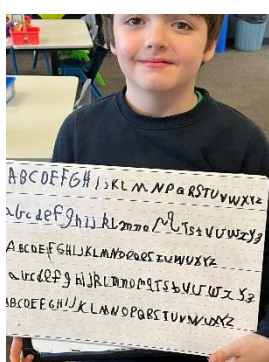 ABCDEFGHIJKLMNPQRSTUVWXYZ
abcdefghijkLmno TstuUwxyz
ABCDEFGHIJKLMNOPQRSTUVWUXYZ
abcdefghijklmnopqTstuUwxyz
ABCDEFGHIJKLMNOPQRSTUVWXYZ